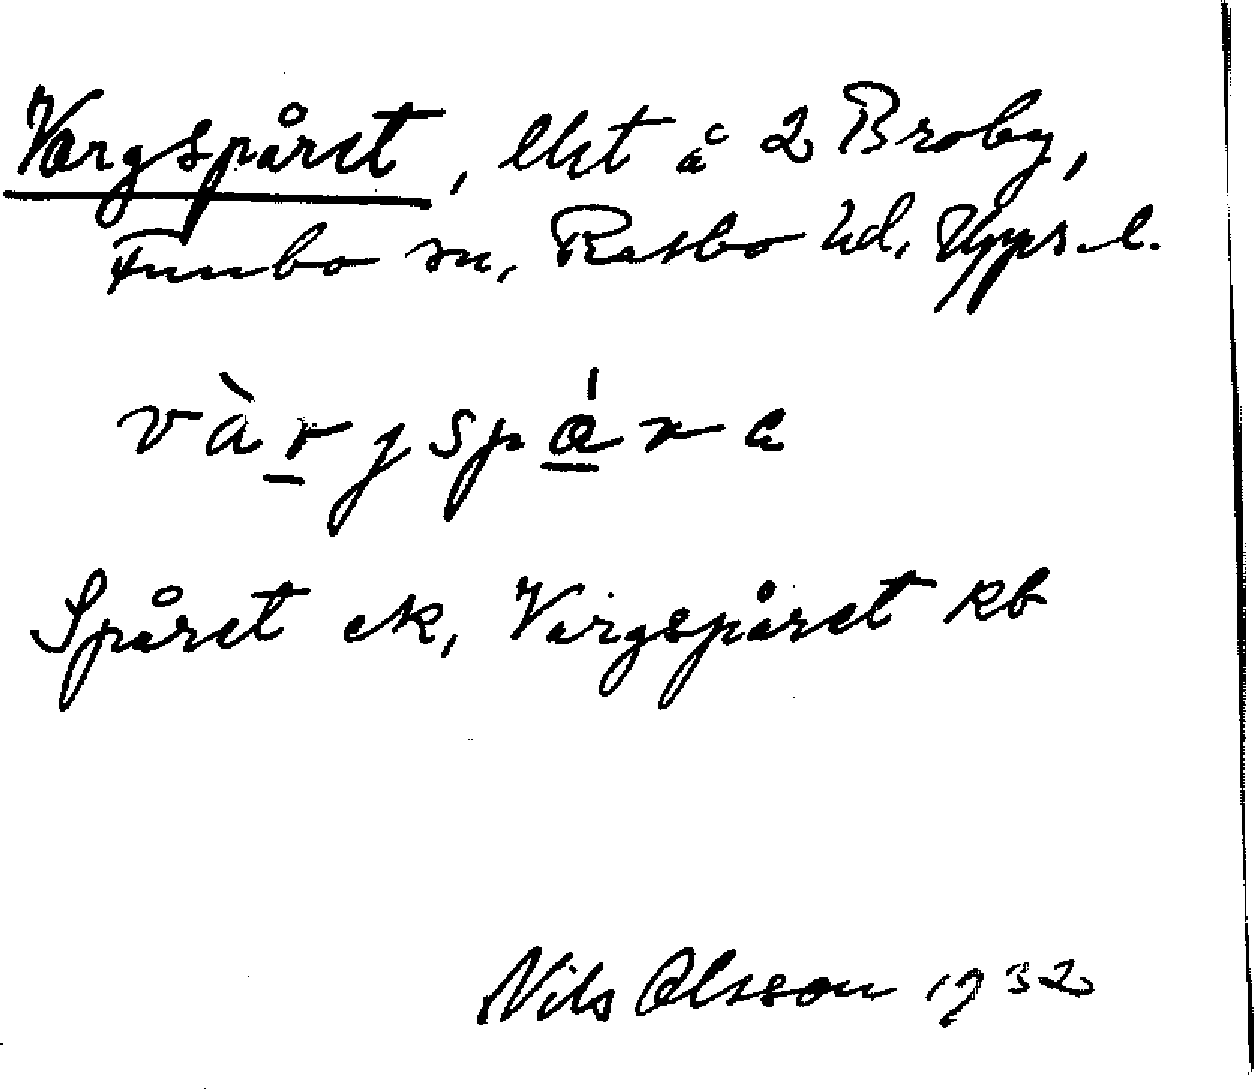 Vargspåret, lht å 2 Broby,
Funbo sn, Rasbo hd, Upps. l.
vàrgspá̱re
Spåret ek, Vargspåret kb
Nils Olsson 1932